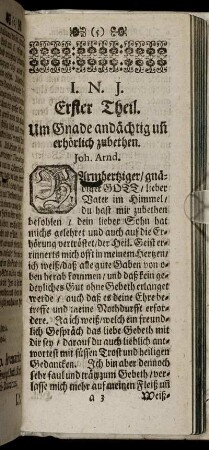 (5)
I. N. J.
Erster Theil.
Um Gnade andächtig uñ
erhörlich zubethen.
Joh. Arnd.
BArmhertziger/gnä-
diger GOTT/lieber
Vater im Himmel/
du hast mir zubethen
befohlen/dein lieber Sohn hat
michs gelehret und auch auf die Er-
hörung vertröstet/der Heil. Geist eriñ-
nerts mich offt in meinem Hertzen/
ich weiß/daß alle gute Gaben von o-
ben herab kommen/und daß kein ge-
deyliches Gut ohne Gebeth erlanget
werde/auch daß es deine Ehre be-
treffe und meine Nothdurfft erfor-
dere. Ja ich weiß/welch ein freund-
lich Gespräch das liebe Gebeth mit
dir sey/darauf du auch lieblich ant-
wortest mit süssen Trost und heiligen
Gedancken. Ich bin aber dennoch
sehr faul und träg zum Gebeth/ver-
lasse mich mehr auf meinen Fleiß uñ
a 3 Weiß-